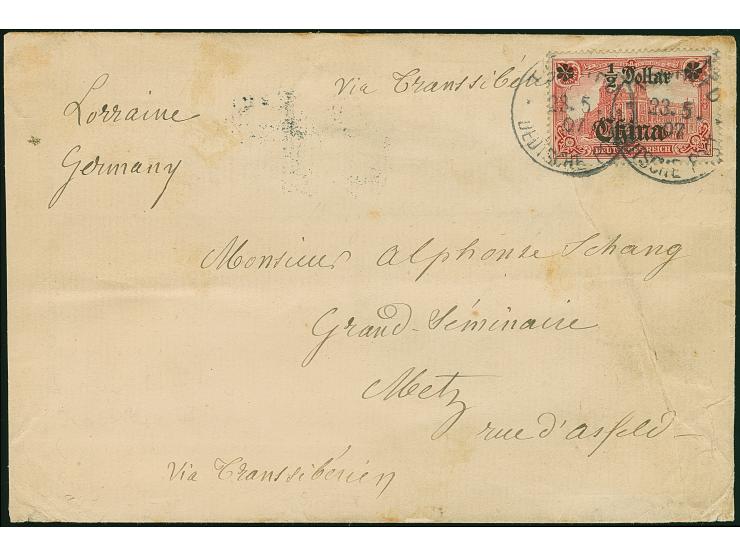 via Transsibérie
½ Dollar
23.5
07
23.5
07
China
DEUTSCHES REICH
DEUTSCHE P
Lorraine
Germany
Monsieur Alphonse Schang
Grand-Séminaire
Metz
rue d'asfeld
via Transsibérien